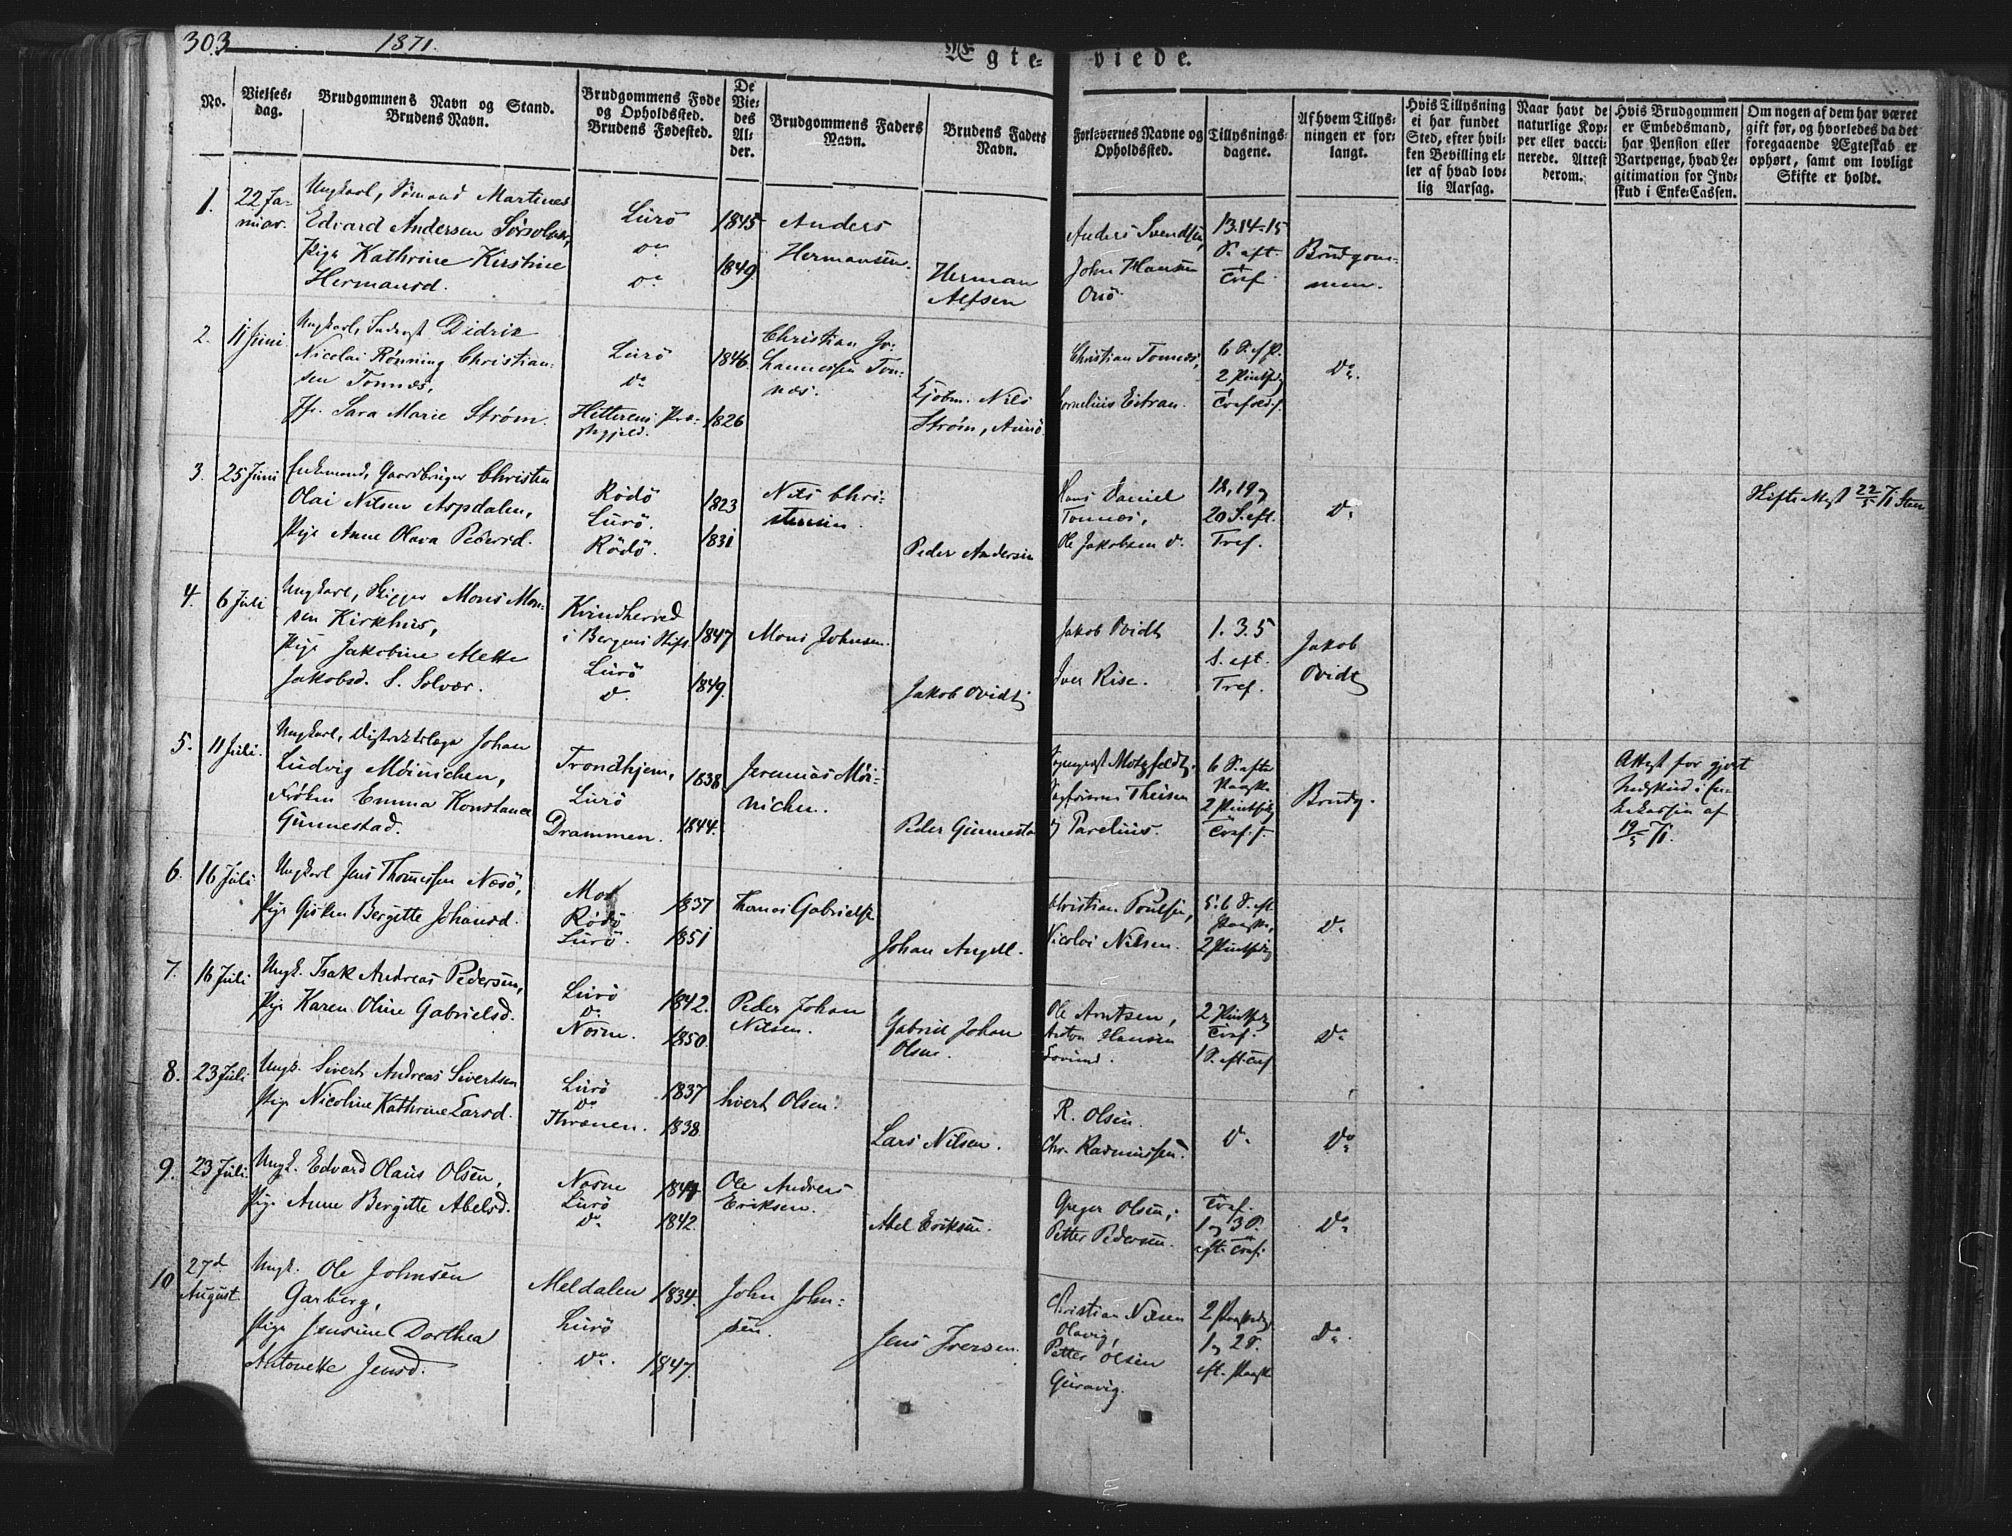 303
1871.
Ægte-
viede.
No.
Vielses-
dag.
Brudgommens Navn og Stand.
Brudens Navn.
Brudgommens Føde
og Opholdssted.
Brudens Fødested.
De
Vie-
des
Al-
der.
Brudgommens Faders
Navn.
Brudens Faders
Navn.
Forlovernes Navne og
Opholdssted.
Tillysnings-
dagene.
Af hvem Tillys-
ningen er for-
langt.
Hvis Tillysning
ei har fundet
Sted, efter hvil-
ken Bevilling el-
ler af hvad lov-
lig Aarsag.
Naar havt de
naturlige Kop-
per eller vacci-
nerede. Attest
derom.
Hvis Brudgommen
er Embedsmand,
har Pension eller
Vartpenge, hvad Le-
gitimation for Ind-
skud i Enke-Cassen.
Om nogen af dem har været
gift før, og hvorledes da det
foregaaende Ægteskab er
ophørt, samt om lovligt
Skifte er holdt.
1.
22 Ja-
nuar.
Ungkarl, Sømand Martines
Edvard Andersen
Pige Kathrine Kirstine
Hermansd.
Lurø
do
do
1845
1849
Anders
Hermansen.
Herman
Alfsen
Anders Svendsen,
John Hansen
Onø
13.14-15
S. eft.
Tref.
Brudgom-
men.
2.
11 Juni
Ungkarl, Didrik
Nicolai Rønning Christian-
sen Tonnæs,
Jfr. Sara Marie Strøm.
Lurø
do
Hitterens Præ-
stegjeld.
1846
1826
Christian Jo-
hannessen Ton-
næs.
Kjøbm. Nils
Strøm,
Christian Tonnæs,
Cornelius
6 S. ef P.
2 Pintsedg
Do.
3.
25 Juni
Enkemand, Gaardbruger Christen
Olai Nilsen Aspdalen,
Pige Anne Olava Pedersd.
Rødø
Lurø.
Rødø.
1823
1831
Nils Chri-
stensen.
Peder Andersen
Hans Daniel
Tonnæs,
Ole Jakobsen do.
18, 19 og
20 S. eft.
Tref.
Do
Skifte Attest 22/5 71
4.
6 Juli
Ungkarl, Skipper Mons Mon-
sen Kirkhus,
Pige Jakobine Mette
Jakobsd. S. Solvær.
Kvindherred
i Bergens Stift
Lurø
do.
1847
1849.
Mons Johnsen.
Jakob Ovidt
Jakob Ovidt
Iver Rise.
1. 3. 5
S. eft.
Tref.
Jakob
Ovidt
5.
11 Juli.
Ungkarl, Distriktslæge Johan
Ludvig Möinichen,
Frøken Emma Konstance
Gunnestad.
Trondhjem,
Lurø
Drammen.
1838
1844.
Jeremias Möi-
nichen.
Peder Gunnestad
Sogneprest Motzfeldt,
Theisen
og Parelius.
6 S. efter
Paaske
2 Pintsedg
Tref. f.
Brudg.
Attest for gjort
Indskud i En-
kekassen af
19/5 71.
6.
16 Juli
Ungkarl Jens Thomassen Næsø,
Pige Gjøken Bergitte Johansd.
Mo
Rødø
Lurø.
1837
1851
Thomas Gabrielsen
Johan Angell.
Christian Poulsen,
Nicolai Nilsen.
5. 6 S. eft
Paaske,
2 Pintsedg
Do
7.
16 Juli
Ungk. Isak Andreas Pedersen,
Pige Karen Oline Gabrielsd.
Lurø
do
Nesne.
1842.
1850.
Peder Johan
Nilsen.
Gabriel Johan
Olsen.
Ole Arntsen,
Anton Hansen
Lovund.
2 Pintsedg
Tref.
1 S. eft Tref
Do
8.
23 Juli
Ungk. Sivert Andreas Sivertsen
Pige Nicoline Kathrine Larsd.
Lurø
do
Thrænen.
1837
1838
Sivert Olsen.
Lars Nilsen.
R. Olsen.
Chr. Rasmussen.
do
Do
9.
23 Juli.
Ungk. Edvard Olaus Olsen,
Pige Anne Bergitte Abelsd.
Nesne
Lurø
do
1842.
Ole Andreas
Eriksen.
Abel Eriksen.
Greger Olsen,
Petter Pedersen.
Tref.
1 og 3 S.
eft Tref.
Do
10
27d
August
Ungk. Ole Johnsen
Garberg,
Pige Jensine Dorthea
Antonette Jensd.
Meldalen
Lurø
do.
1834.
1847.
John John-
sen.
Jens Iversen.
Christian Nilsen
Olavig,
Petter Olsen
Guravig.
2 Paaskedg
1 og 2 S.
eft. Paaske
Do.